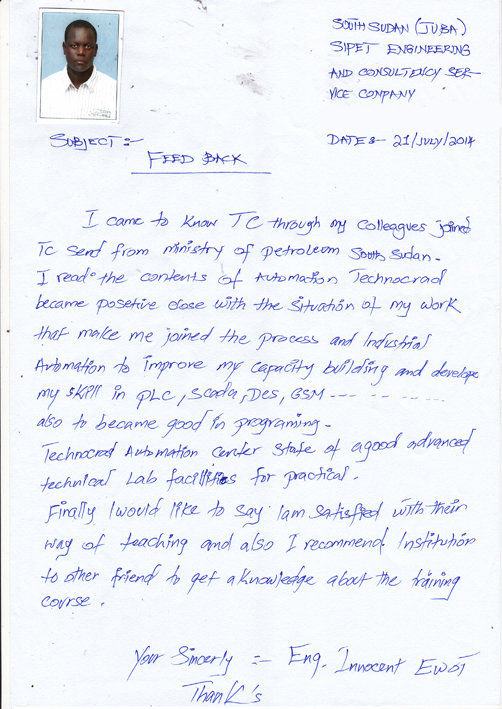 SOUTH SUDAN (JUBA)
SIPET ENGINEERING
AND CONSULTENCY SER-
VICE COMPANY
SUBJECT :-
DATE :- 21/JULY/2014
FEED BACK
I came to know TC through my colleagues joined
Tc send from ministry of petroleum South Sudan.
I read the contents of Automation Technocrad
became posetive close with the situation of my work
that make me joined the process and Industrial
Automation to improve my capacity building and develope
my skill in PLC, Scada, Des, GSM --- -- - ----
also to became good in programing-
Technocrad Automation Center state of agood advanced
technical Lab facilities for practical.
Finally I would like to say Iam satisfied with their
way of teaching and also I recommend Institution
to other friend to get aknowledge about the training
course.
Your Sincerly :- Eng. Innocent Ewot
Thank's